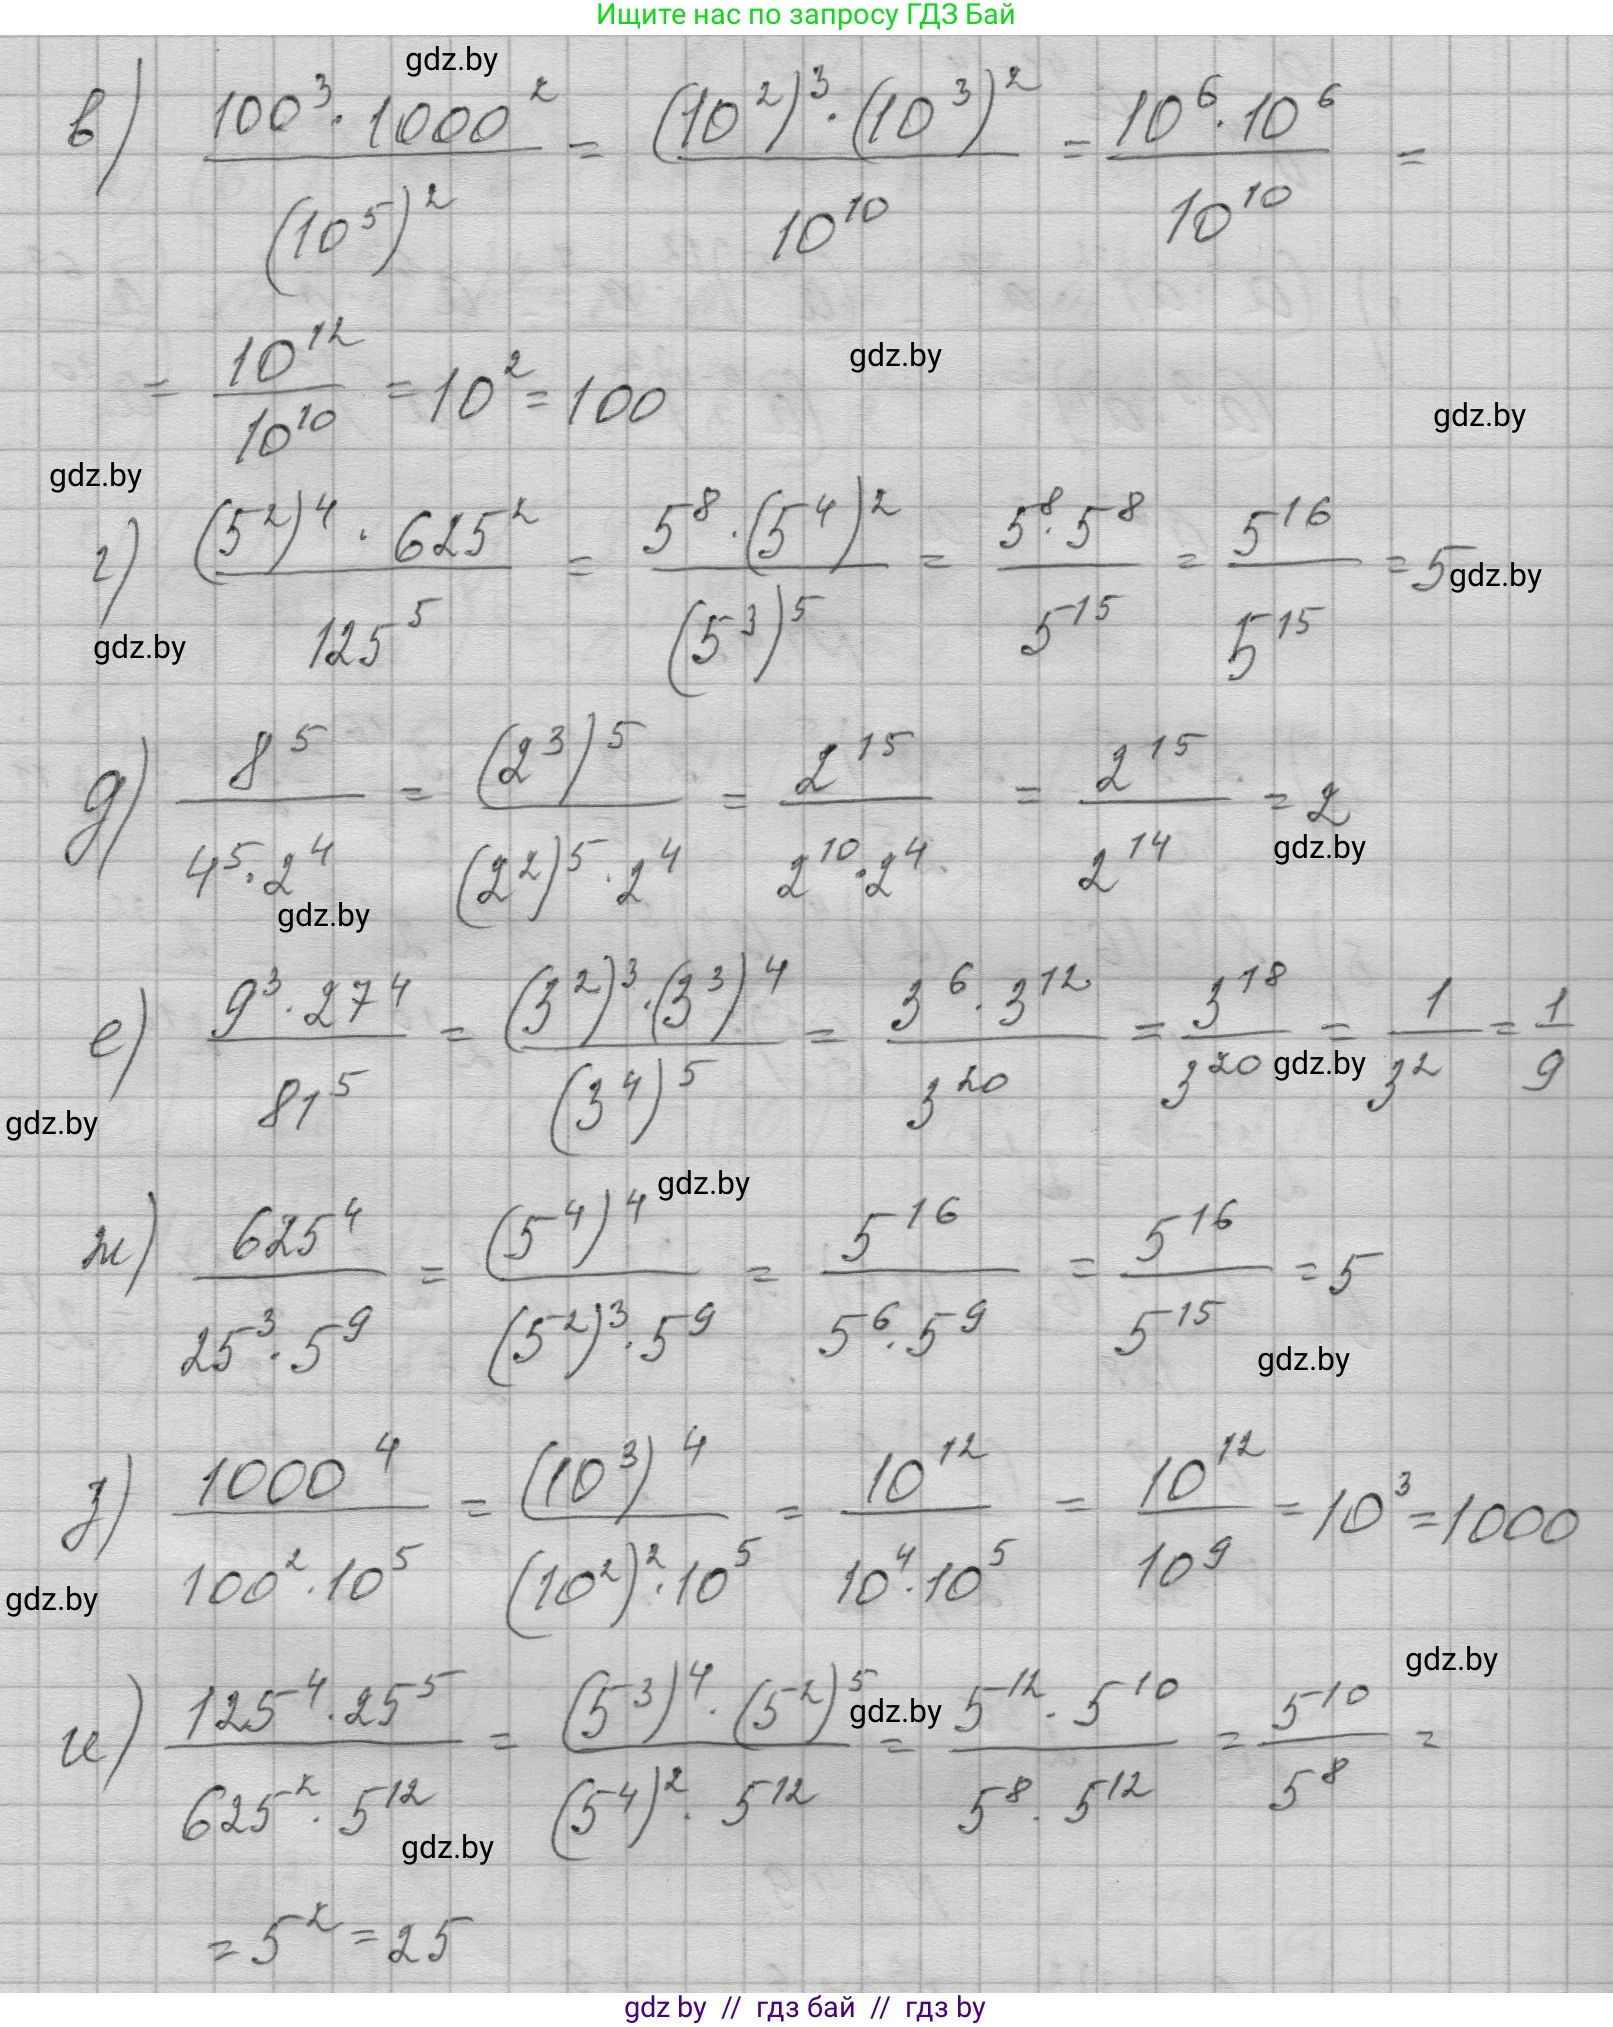 Ищите нас по запросу ГДЗ Бай
gdz.by
в) \frac{100^3 · 1000^2}{(10^5)^2} = \frac{(10^2)^3 · (10^3)^2}{10^{10}} = \frac{10^6 · 10^6}{10^{10}} =
= \frac{10^{12}}{10^{10}} = 10^2 = 100
gdz.by
gdz.by
gdz.by
г) \frac{(5^2)^4 · 625^2}{125^5} = \frac{5^8 · (5^4)^2}{(5^3)^5} = \frac{5^8 · 5^8}{5^{15}} = \frac{5^{16}}{5^{15}} = 5
gdz.by
gdz.by
д) \frac{8^5}{4^5 · 2^4} = \frac{(2^3)^5}{(2^2)^5 · 2^4} = \frac{2^{15}}{2^{10} · 2^4} = \frac{2^{15}}{2^{14}} = 2
gdz.by
gdz.by
е) \frac{9^3 · 27^4}{81^5} = \frac{(3^2)^3 · (3^3)^4}{(3^4)^5} = \frac{3^6 · 3^{12}}{3^{20}} = \frac{3^{18}}{3^{20}} = \frac{1}{3^2} = \frac{1}{9}
gdz.by
gdz.by
gdz.by
ж) \frac{625^4}{25^3 · 5^9} = \frac{(5^4)^4}{(5^2)^3 · 5^9} = \frac{5^{16}}{5^6 · 5^9} = \frac{5^{16}}{5^{15}} = 5
gdz.by
з) \frac{1000^4}{100^2 · 10^5} = \frac{(10^3)^4}{(10^2)^2 · 10^5} = \frac{10^{12}}{10^4 · 10^5} = \frac{10^{12}}{10^9} = 10^3 = 1000
gdz.by
gdz.by
и) \frac{125^4 · 25^5}{625^2 · 5^{12}} = \frac{(5^3)^4 · (5^2)^5}{(5^4)^2 · 5^{12}} = \frac{5^{12} · 5^{10}}{5^8 · 5^{12}} = \frac{5^{10}}{5^8} =
gdz.by
gdz.by
= 5^2 = 25
gdz by // гдз бай // гдз by